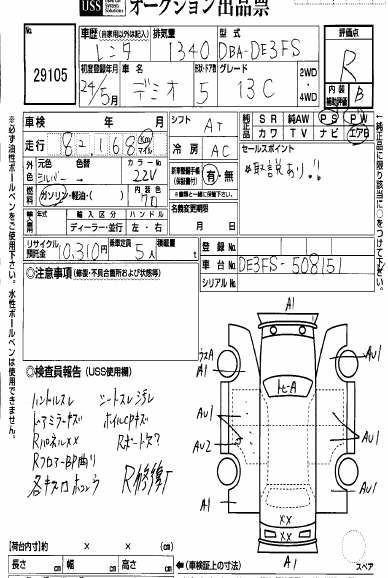 USS オークション出品票
No.
29105
車歴 (自家用以外は記入)
レンタ
排気量
1340
型式
DBA-DE3FS
評価点
R
初度登録年月
24/5月
車名
デミオ
形状・ドア数
5
グレード
13C
2WD
4WD
内装補助評価
B
車検 年 月
シフト
AT
純正品
SR 純AW PS PW
カワ TV ナビ エアB
走行
82,168 Km マイル
冷房
AC
セールスポイント
*取説あり!!
外色
元色
シルバー
色替
→
カラーNo
22V
新車整備手帳(保証書付)
有・無
燃料
ガソリン・軽油・( )
内装色
名義変更期限
月 日
輸入車
年式
輸入区分
ディーラー・並行
ハンドル
左・右
リサイクル預託金
10,310円
乗車定員
5人
積載量
t
登録No.
車台No.
DE3FS-508151
シリアルNo.
◎注意事項(修復・不具合箇所および状態等)
◎検査員報告(USS使用欄)
ハンドルスレ シートスレ汚レ
ドアミラーキズ ホイルCPキズ
RパネルXX
RフロアーBP曲り
R修復
A1
A1
AU1
AU1
AU2
AU1
A1
AU1
XX
XX
A1
スペア
[荷台内寸]約 × × (cm)
長さ cm 幅 cm 高さ cm
(車検証上の寸法)
※必ず油性ボールペンをご使用下さい。水性ボールペンは使用できません。
←純正品に限り該当に○をつけて下さい。